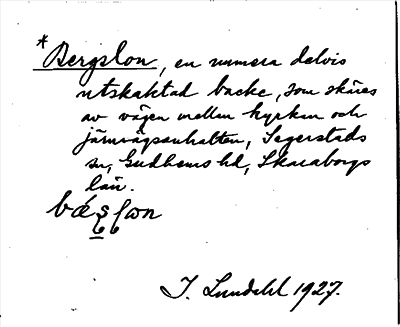 * Bergslon, en numera delvis
utskaktad backe, som skäres
av vägen mellan kyrkan och
järnvägsanhalten, Segerstads
sn, Gudhems hd, Skaraborgs
län.
I. Lundahl 1927.